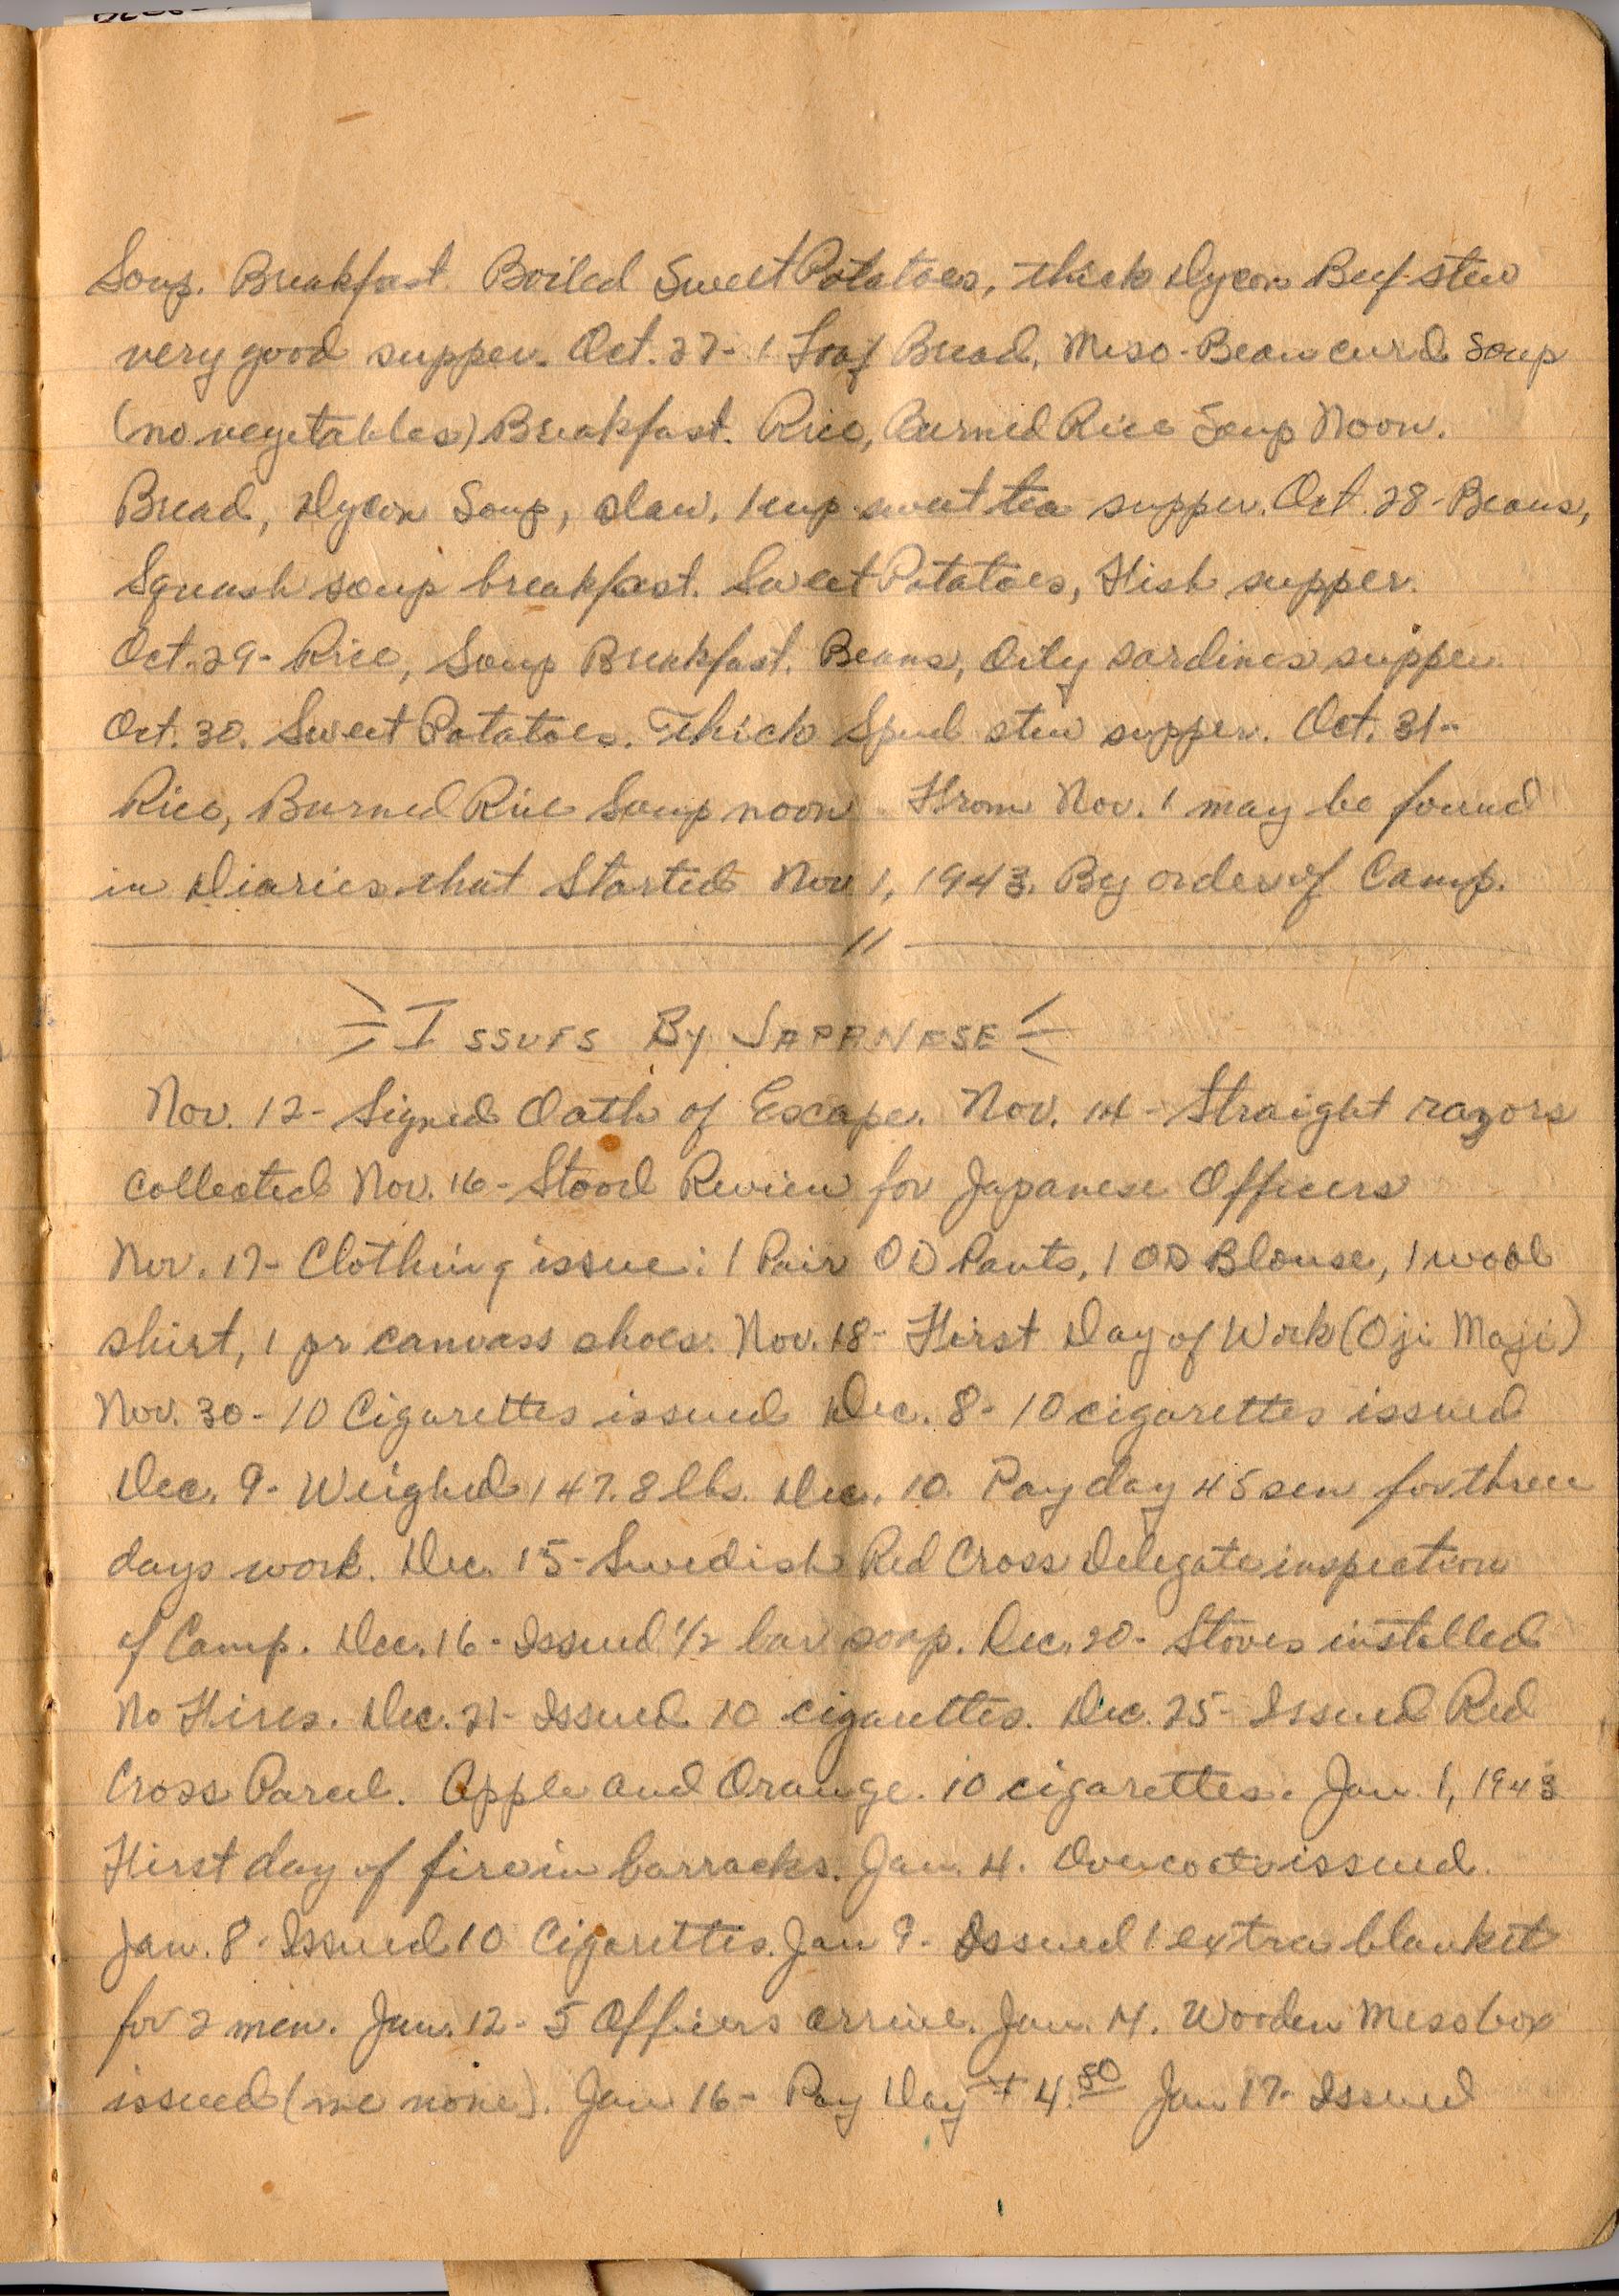 Soup. Breakfast. Boiled Sweet Potatoes, thick Dycon Beef stew
very good supper. Oct. 27- 1 Loaf Bread, Miso-Beancurd Soup
(no vegetables) Breakfast. Rice, Burned Rice Soup Noon.
Bread, Dycon Soup, slaw, 1 cup sweet tea supper. Oct. 28- Beans,
Squash soup breakfast. Sweet Potatoes, Fish supper.
Oct. 29- Rice, Soup Breakfast. Beans, Oily sardines supper.
Oct. 30. Sweet Potatoes. Thick Spud stew supper. Oct. 31-
Rice, Burned Rice Soup noon. From Nov. 1 may be found
in Diaries that Started Nov 1, 1943. By order of Camp.
Issues By Japanese
Nov. 12- Signed Oath of Escape. Nov. 14- Straight razors
collected Nov. 16- Stood Review for Japanese Officers
Nov. 17- Clothing issue: 1 Pair OD Pants, 1 OD Blouse, 1 wool
shirt, 1 pr canvass shoes. Nov. 18- First Day of Work (Oji Maji)
Nov. 30- 10 Cigarettes issued Dec. 8- 10 cigarettes issued
Dec. 9- Weighed 147.8 lbs. Dec. 10. Payday 45 sen for three
days work. Dec. 15- Swedish Red Cross Delegate inspection
of Camp. Dec. 16- Issued 1/2 bar soap. Dec. 20- Stoves installed
No Fires. Dec. 21- Issued 10 cigarettes. Dec. 25- Issued Red
Cross Parcel. Apple and Orange. 10 cigarettes. Jan. 1, 1943
First day of fire in barracks. Jan. 4. Overcoats issued.
Jan. 8- Issued 10 Cigarettes. Jan 9- Issued 1 extra blanket
for 2 men. Jan. 12- 5 Officers arrive. Jan. 14. Wooden Mess box
issued (me none). Jan 16- Pay Day 4.50 Jan 17- Issued